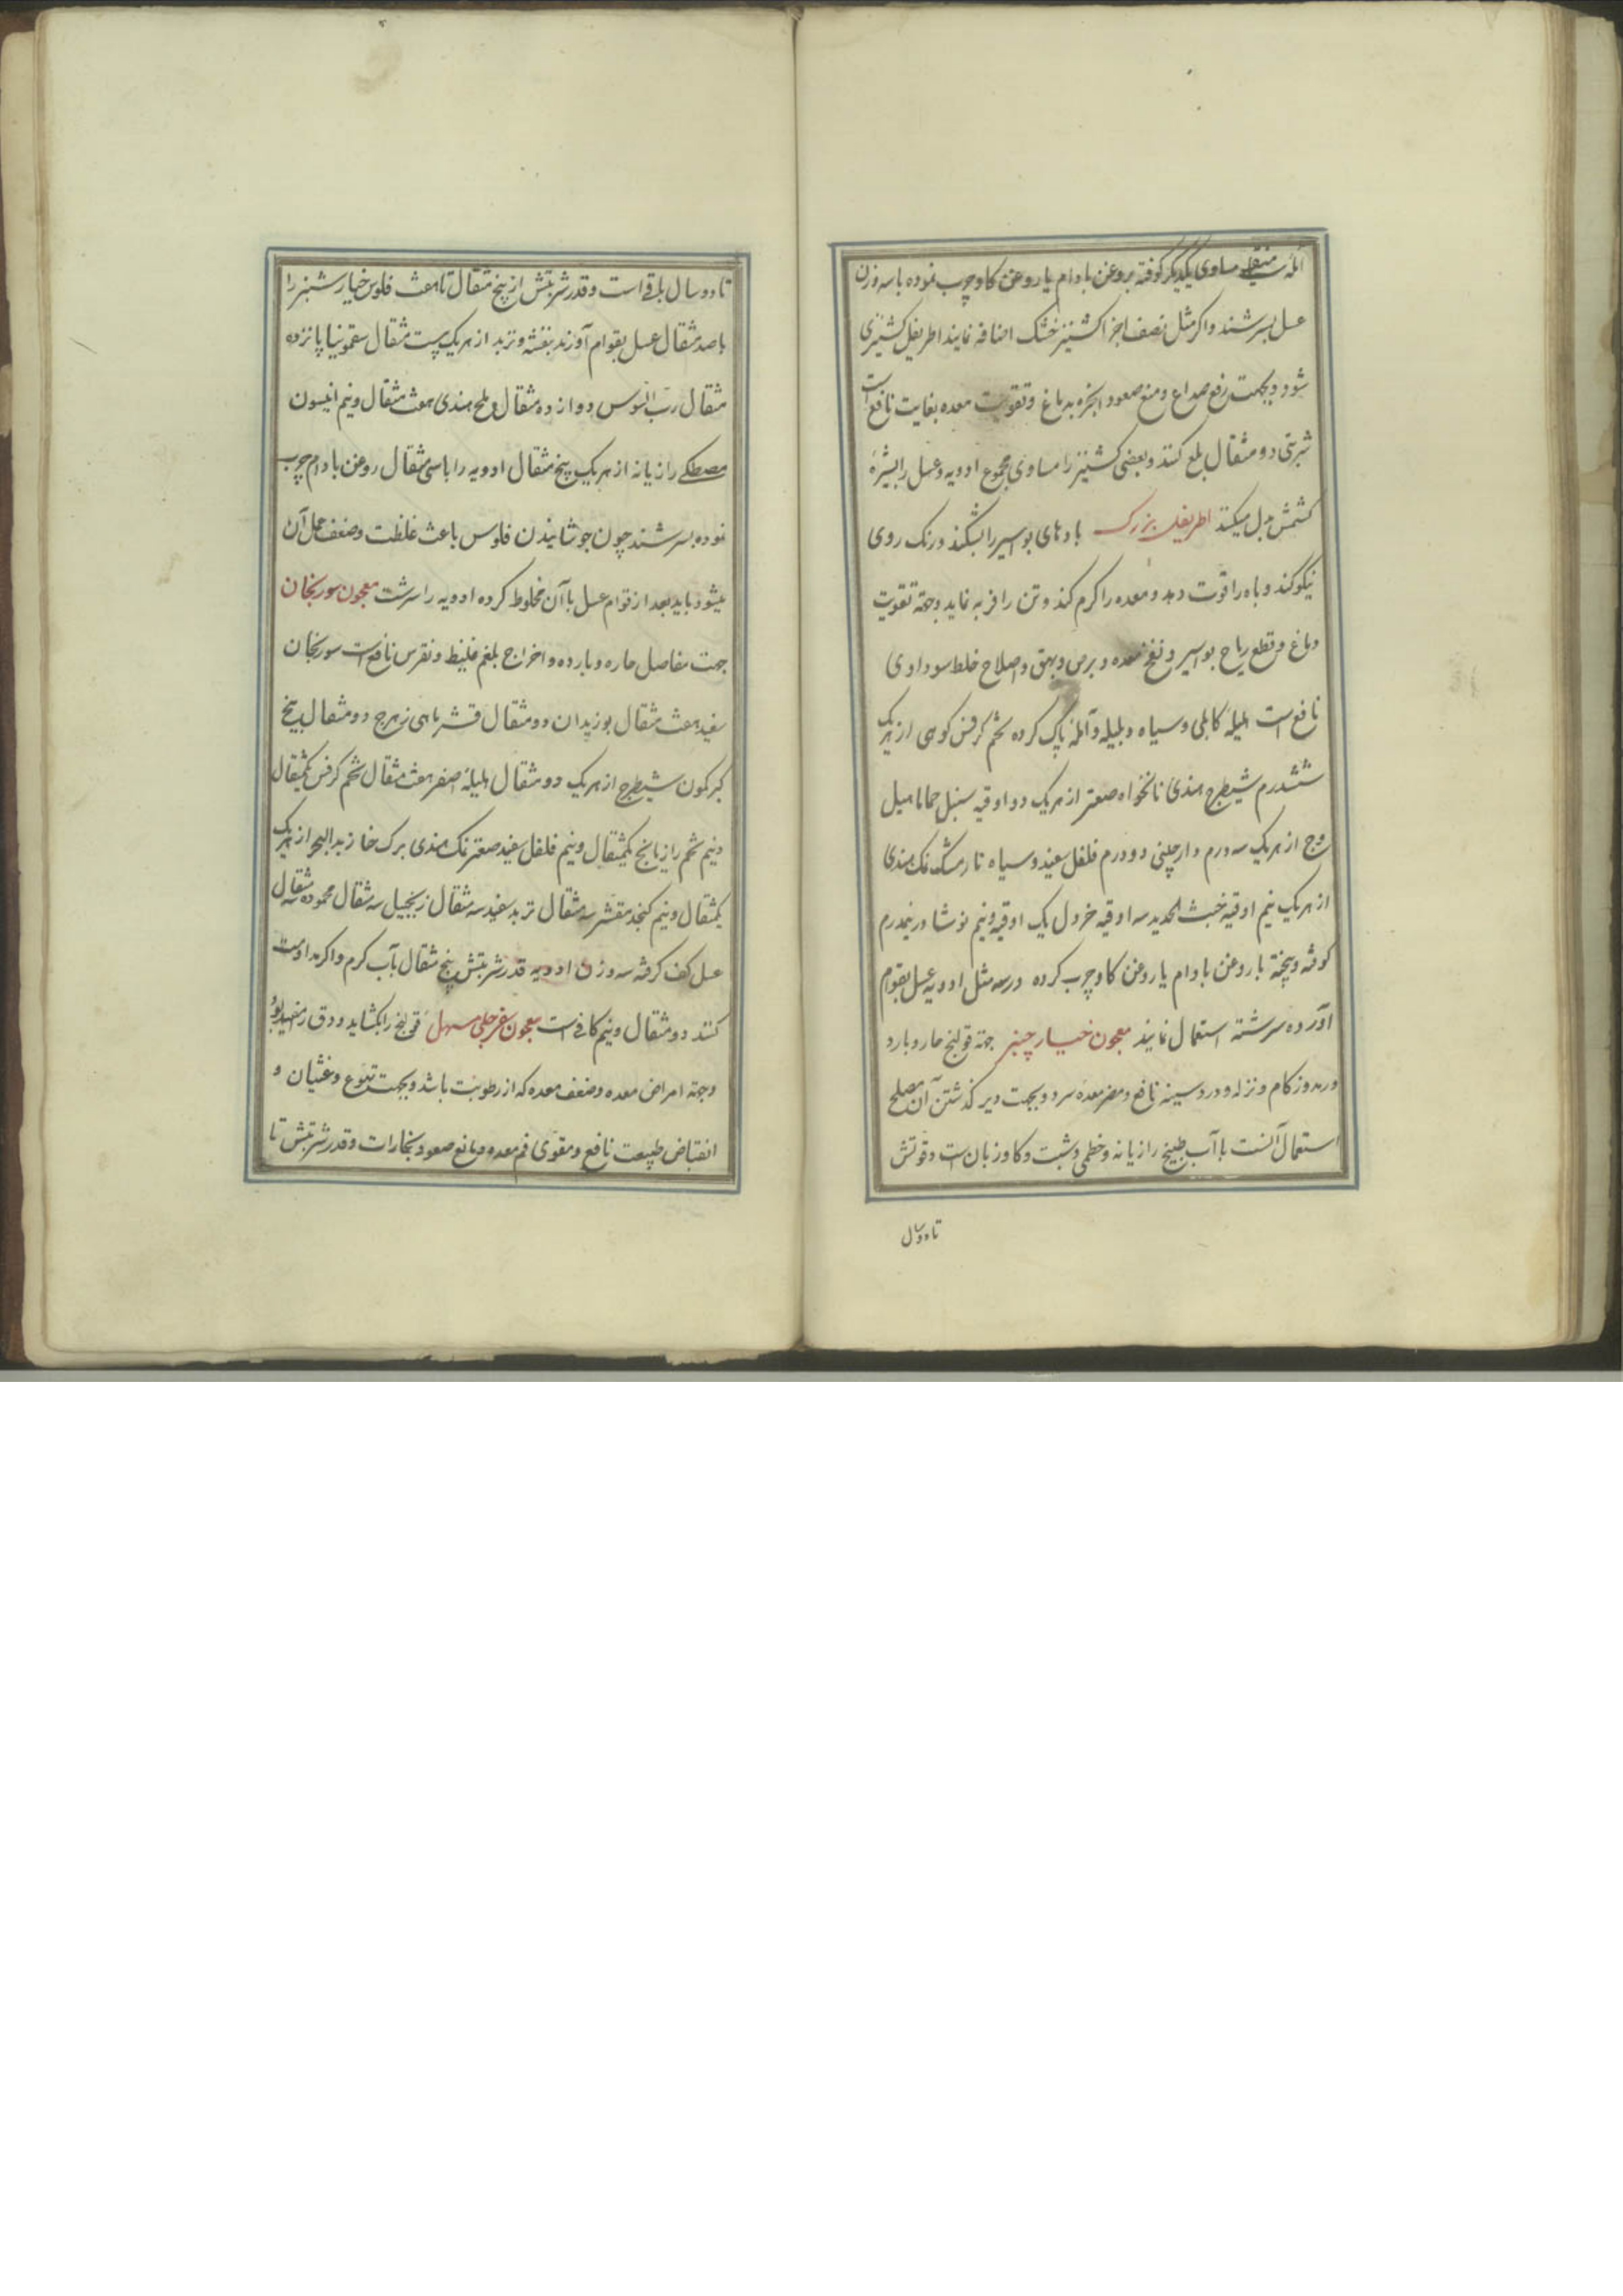 آمله منقی مساوی یکدیگر کوفته بروغن بادام یا روغن کاو چرب نموده با سه وزن
عسل بسرشند و اکر مثل نصف اجزا کشنیز خشک اضافه نمایند اطریفل کشنیزی
شود و بجهت رفع صداع و منع صعود ابخره بدماغ و تقویت معده بغایت نافع است
شربتی دو مثقال بلع کنند و بعضی کشنیز را مساوی مجموع ادویه و عسل را بشیرهٔ
کشمش بدل میکنند اطریفل بزرک بادهای بواسیر را بشکند و رنک روی
نیکو کند و باه را قوت دهد و معده را کرم کند و تن را فربه نماید و جهته تقویت
دماغ و قطع ریاح بواسیر و نفخ معده و برص و بهق و اصلاح خلط سوداوی
نافع است هلیلهٔ کابلی و سیاه و بلیله و آمله پاک کرده تخم کرفس کوهی از هریک
ششدرم شیطرج هندی نانخواه صعتر از هریک دو اوقیه سنبل حماما هیل
وج از هریک سه درم دارچینی دو درم فلفل سفید و سیاه نارمشک نمک هندی
از هریک نیم اوقیه خبث الحدید سه اوقیه خردل یک اوقیه و نیم نوشادر نیمدرم
کوفته و بیخته با روغن بادام یا روغن کاو چرب کرده در سه مثل ادویه عسل بقوام
آورده سرشته استعمال نمایند معجون خیار چنبر جهته قولنج حار و بارد
و رمد و زکام و نزله و درد سینه نافع و مضر معده سرد و بجهت دیر کذشتن آن مصلح
استعمال آنست با آب طبیخ رازیانه و خطمی و شبت و کاوزبان است و قوتش
تا دو سال
تا دو سال باقی است و قدر شربتش از پنج مثقال تا هفت فلوس خیار شنبر را
با صد مثقال عسل بقوام آورند بنفشه و تربد از هریک بیست مثقال سقمونیا پانزده
مثقال رب السوس دوازده مثقال و ملح هندی هفت مثقال و نیم انیسون
مصطکی رازیانه از هریک پنج مثقال ادویه را با سی مثقال روغن بادام چرب
نموده بسرشند چون جوشانیدن فلوس باعث غلظت و ضعف عمل آن
میشود باید بعد از قوام عسل با آن مخلوط کرده ادویه را سرشت معجون سورنجان
جهت مفاصل حاره و بارده و اخراج بلغم غلیظ و نقرس نافع است سورنجان
سفید هفت مثقال بوزیدان دو مثقال قشر ماهی زهرج دو مثقال بیخ
کبر کمون شیطرج از هریک دو مثقال هلیلهٔ اصفر هفت مثقال تخم کرفس یکمثقال
و نیم تخم رازیانج یکمثقال و نیم فلفل سفید صعتر نمک هندی برک حنا زبد البحر از هریک
یکمثقال و نیم کنجد مقشر سه مثقال تربد سفید سه مثقال زنجبیل سه مثقال محموده سه مثقال
عسل کف کرفته سه وزن ادویه قدر شربتش پنج مثقال بآب کرم و اکر مداومت
کنند دو مثقال و نیم کافی است معجون سفرجلی مسهل قولنج را بکشاید و دق را مفید بود
و جهته امراض معده و ضعف معده که از رطوبت باشد و بجهت تهوع و غثیان و
انقباض طبیعت نافع و مقوی فم معده و مانع صعود بخارات و قدر شربتش تا